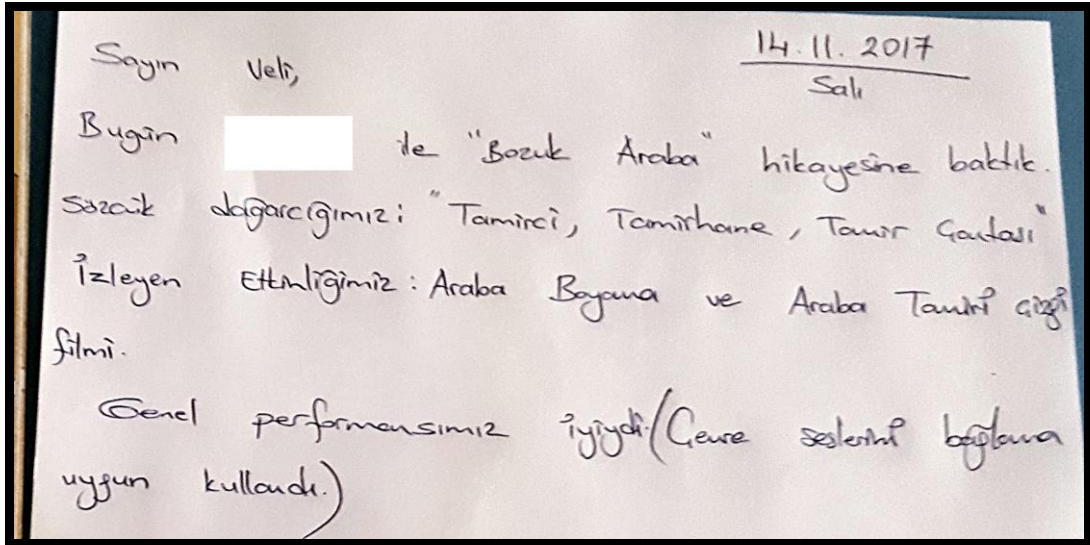 14.11.2017
Salı
Sayın Veli,
Bugün ile "Bozuk Araba" hikayesine baktık.
Sözcük dağarcığımız: "Tamirci, Tamirhane, Tamir Çantası"
İzleyen Etkinliğimiz: Araba Boyama ve Araba Tamiri çizgi
filmi.
Genel performansımız iyiydi. (Çevre seslerini bağlama
uygun kullandı.)